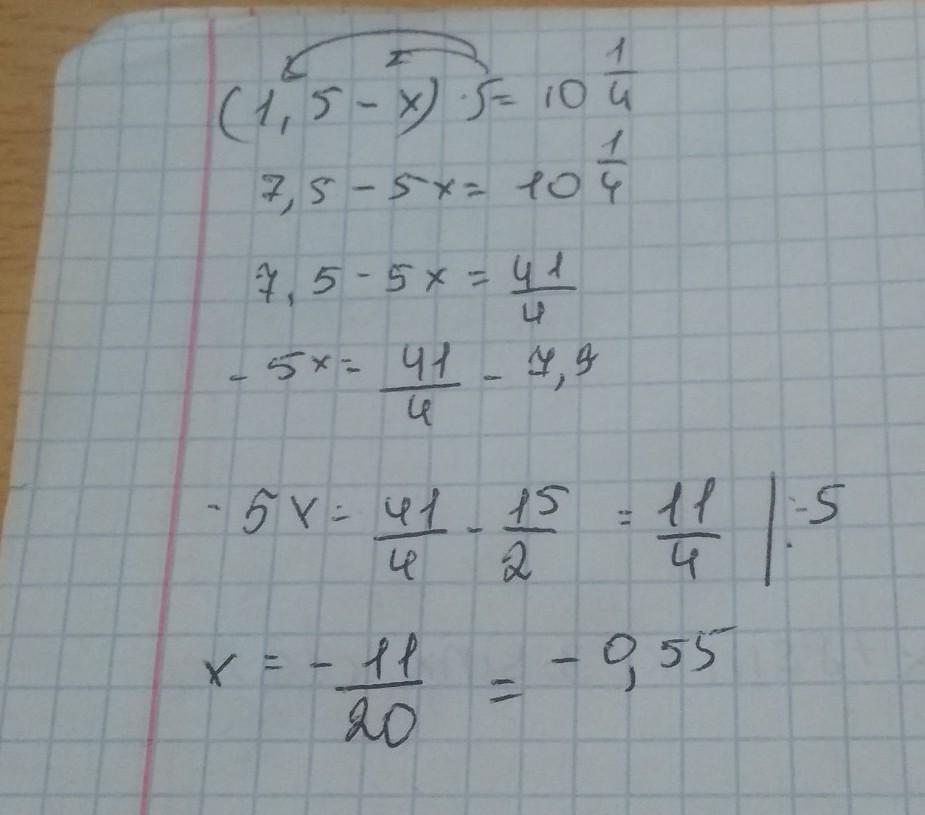 (1,5 - x) · 5 = 10 1/4
7,5 - 5x = 10 1/4
7,5 - 5x = 41/4
- 5x = 41/4 - 7,5
- 5x = 41/4 - 15/2 = 11/4 | : -5
x = - 11/20 = - 0,55